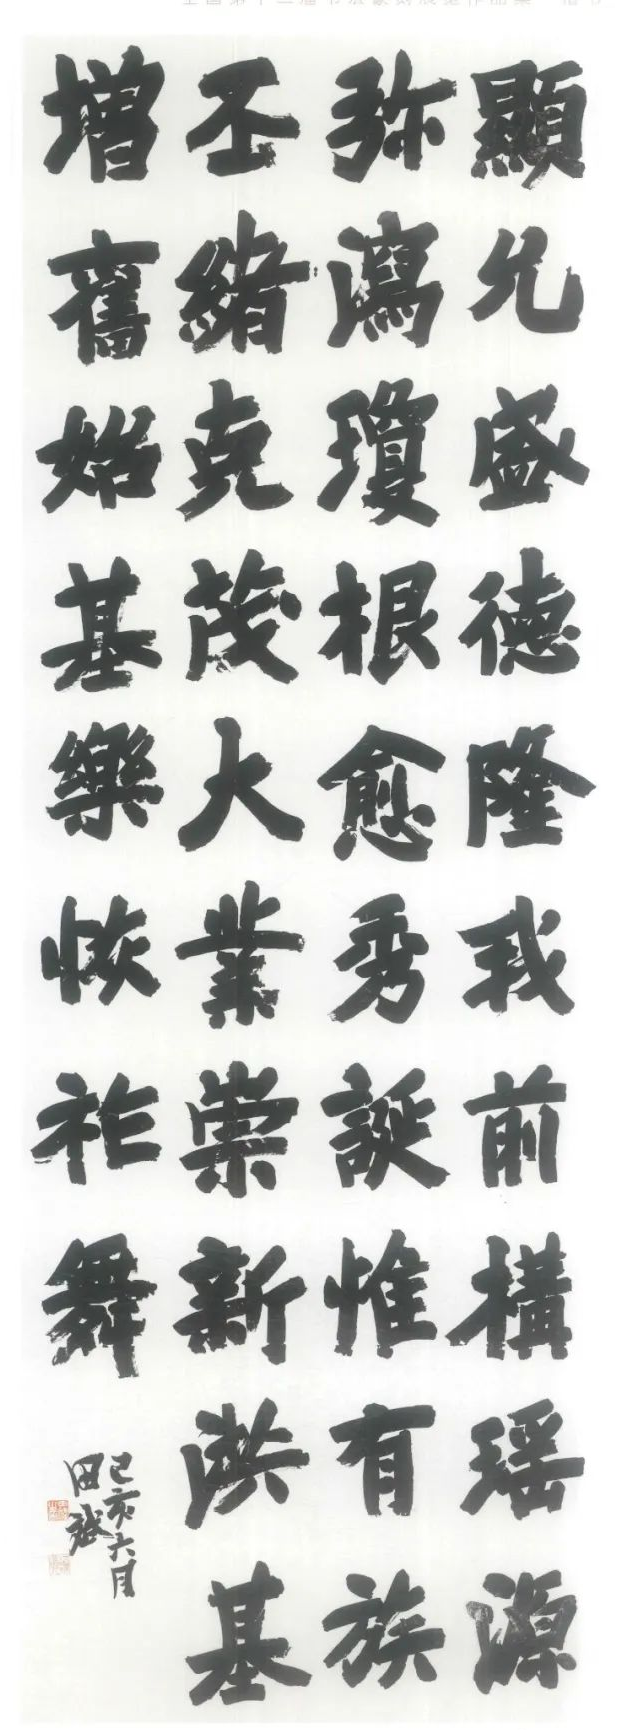 顯允盛德隆我前構瑶源
弥瀉瓊根愈秀誕惟有族
丕緒克茂大業崇新洪基
增舊始基樂恢祚舞
己亥六月
田